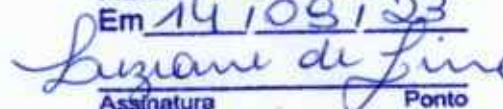 Em 14 / 09 / 23
Luziane de Lim
Assinatura Ponto